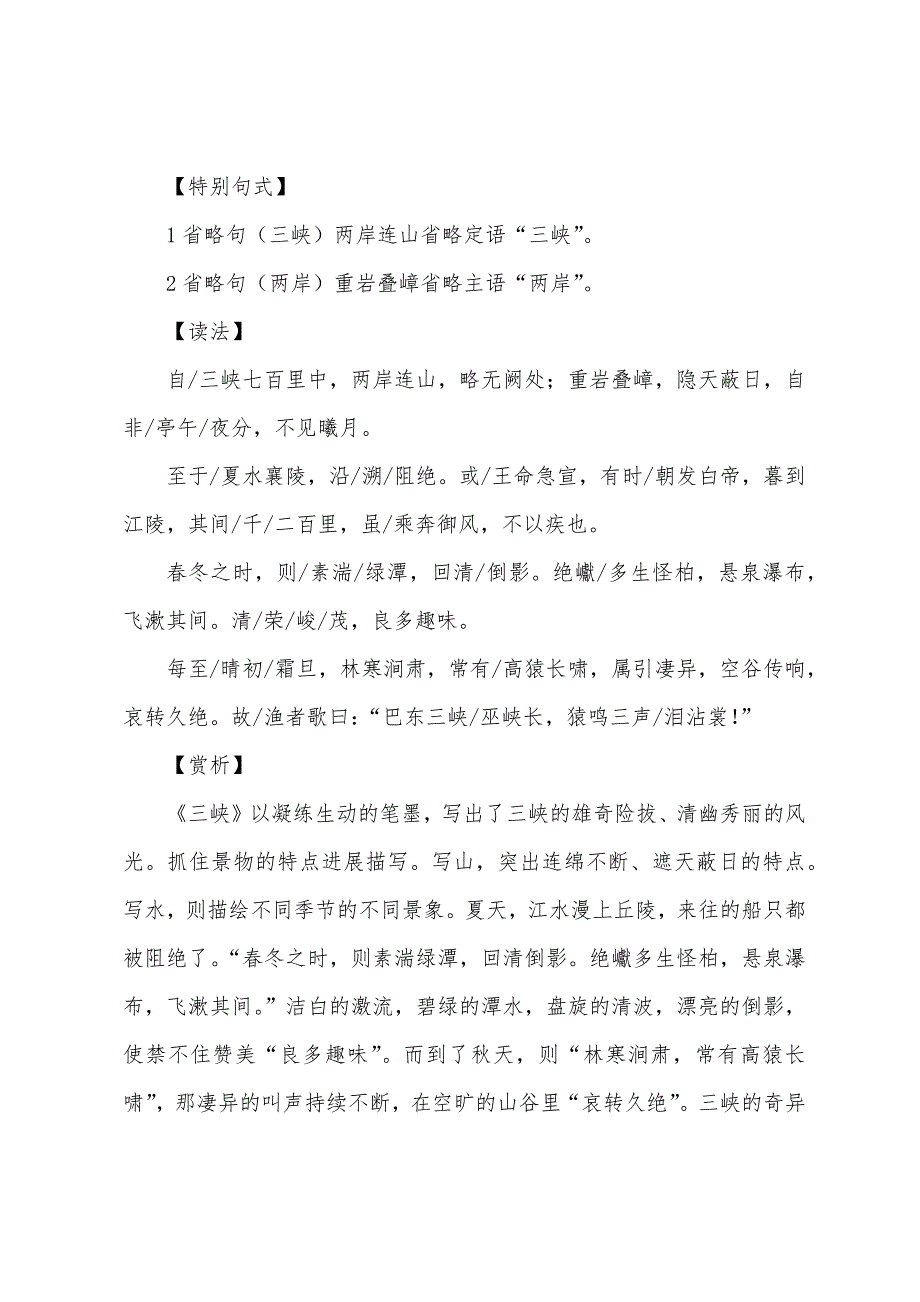 【特别句式】
1省略句（三峡）两岸连山省略定语“三峡”。
2省略句（两岸）重岩叠嶂省略主语“两岸”。
【读法】
自/三峡七百里中，两岸连山，略无阙处；重岩叠嶂，隐天蔽日，自
非/亭午/夜分，不见曦月。
至于/夏水襄陵，沿/溯/阻绝。或/王命急宣，有时/朝发白帝，暮到
江陵，其间/千/二百里，虽/乘奔御风，不以疾也。
春冬之时，则/素湍/绿潭，回清/倒影。绝巘/多生怪柏，悬泉瀑布，
飞漱其间。清/荣/峻/茂，良多趣味。
每至/晴初/霜旦，林寒涧肃，常有/高猿长啸，属引凄异，空谷传响，
哀转久绝。故/渔者歌曰：“巴东三峡/巫峡长，猿鸣三声/泪沾裳！”
【赏析】
《三峡》以凝练生动的笔墨，写出了三峡的雄奇险拔、清幽秀丽的风
光。抓住景物的特点进展描写。写山，突出连绵不断、遮天蔽日的特点。
写水，则描绘不同季节的不同景象。夏天，江水漫上丘陵，来往的船只都
被阻绝了。“春冬之时，则素湍绿潭，回清倒影。绝巘多生怪柏，悬泉瀑
布，飞漱其间。”洁白的激流，碧绿的潭水，盘旋的清波，漂亮的倒影，
使禁不住赞美“良多趣味”。而到了秋天，则“林寒涧肃，常有高猿长
啸”，那凄异的叫声持续不断，在空旷的山谷里“哀转久绝”。三峡的奇异